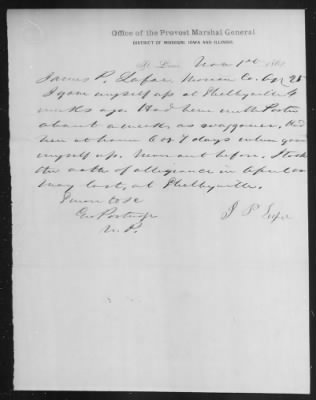 Office of the Provost Marshal General
DISTRICT OF MISSOURI, IOWA AND ILLINOIS.
St. Louis
James P. Co. age 25
I gave myself up at Shelbyville 4
weeks ago. Had been with Porter
about a week, as waggoner. Had
been at home 6 or 7 days when gave
myself up. Never out before. I took
the oath of allegiance in April or
May last, at Shelbyville.
Sworn to &c
J P